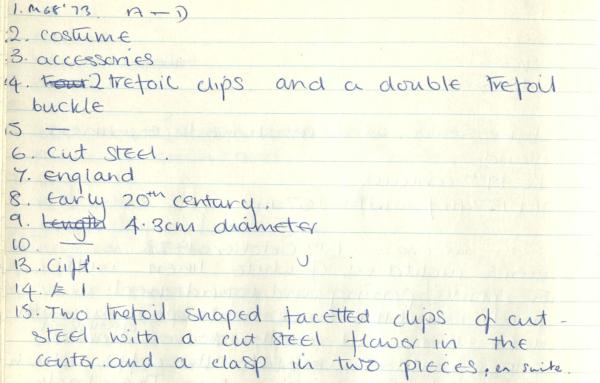 1. M68'73. A-D
2. costume
3. accessories
4. Four 2 trefoil clips and a double trefoil
buckle
5 —
6. cut steel.
7. england
8. Early 20th century.
9. Length 4.3cm diameter
10 —
13. Gift.
14. E 1
15. Two trefoil shaped facetted clips of cut-
steel with a cut steel flower in the
center. and a clasp in two pieces, en suite.